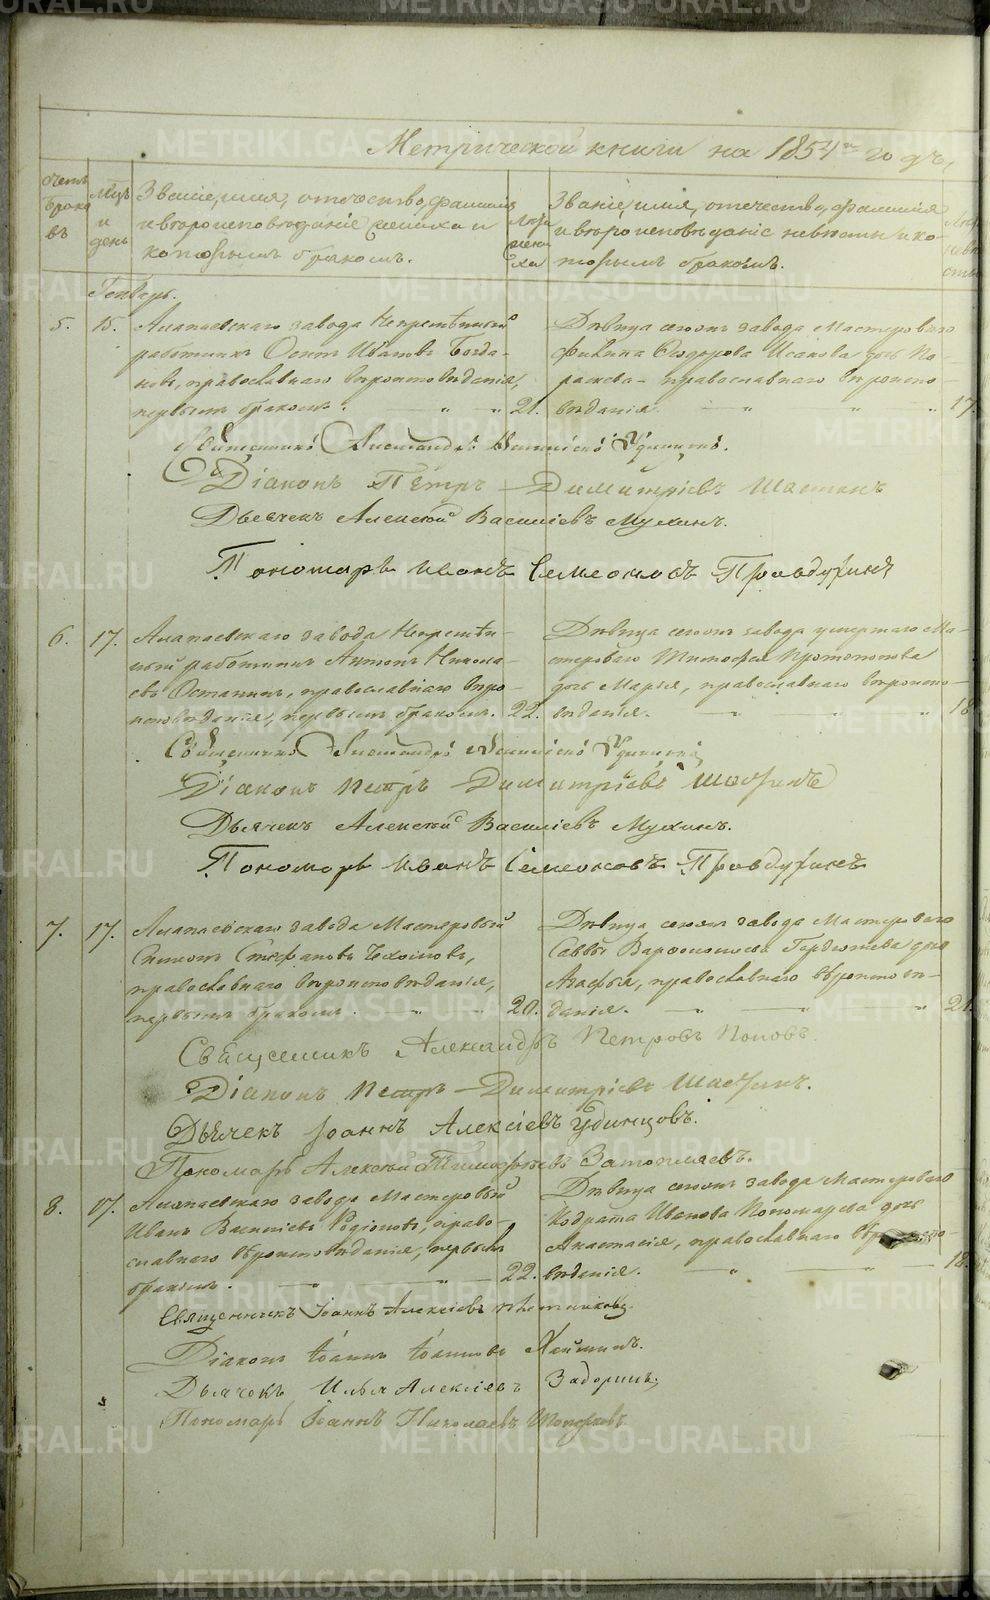 Метрической книги на 1854 годъ,
Счетъ браковъ
Мѣц. и день
Званіе, имя, отечество, фамилія и вѣроисповѣданіе жениха и которымъ бракомъ.
Лѣта жениха
Званіе, имя, отечество, фамилія и вѣроисповѣданіе невѣсты и которымъ бракомъ.
Генварь.
5. 15. Алапаевскаго завода Непремѣнный
работникъ Осипъ Ивановъ Богда-
новъ, православнаго вѣроисповѣданія,
первымъ бракомъ. 21.
Дѣвица сегожъ завода Мастероваго
Филипа Ѳедорова Исакова дочь Па-
раскева православнаго вѣроиспо-
вѣданія 17.
Священникъ Александръ Удинцевъ.
Діаконъ Петръ Димитріевъ
Дьячекъ Алексѣй Василіевъ Мухинъ.
Пономарь Иванъ Семеоновъ Правдухинъ
6. 17. Алапаевскаго завода Непремѣн-
ный работникъ Антонъ Никола-
евъ Останинъ, православнаго вѣро-
исповѣданія, первымъ бракомъ. 22.
Дѣвица сегожъ завода умершаго Ма-
стероваго Тимофея Протопопова
дочь Марья, православнаго вѣроиспо-
вѣданія. 18
Священникъ Александръ Удинцевъ
Діаконъ Петръ Димитріевъ
Дьячекъ Алексѣй Василіевъ Мухинъ.
Пономарь Иванъ Семеоновъ Правдухинъ
7. 17. Алапаевскаго завода Мастеровый
Симонъ Стефановъ
православнаго вѣроисповѣданія,
первымъ бракомъ. 20.
Дѣвица сегожъ завода Мастероваго
Саввы Варфоломеева дочь
Агафья, православнаго вѣроисповѣ-
данія. 21.
Священникъ Александръ Петровъ Поповъ.
Діаконъ Петръ Димитріевъ
Дьячекъ Іоаннъ Алексіевъ Удинцовъ.
Пономарь Алексѣй Затопляевъ.
8. 17. Алапаевскаго завода Мастеровый
Иванъ Василіевъ Родіоновъ, право-
славнаго вѣроисповѣданія, первымъ
бракомъ. 22.
Дѣвица сегожъ завода Мастероваго
Кодрата Иванова Пономарева дочь
Анастасія, православнаго вѣроиспо-
вѣданія. 18.
Священникъ Іоаннъ Алексіевъ Плотниковъ
Діаконъ Іоаннъ Іоанновъ
Дьячокъ Илья Алексіевъ Задоринъ
Пономарь Іоаннъ Николаевъ Топорковъ
METRIKI.GASO-URAL.RU